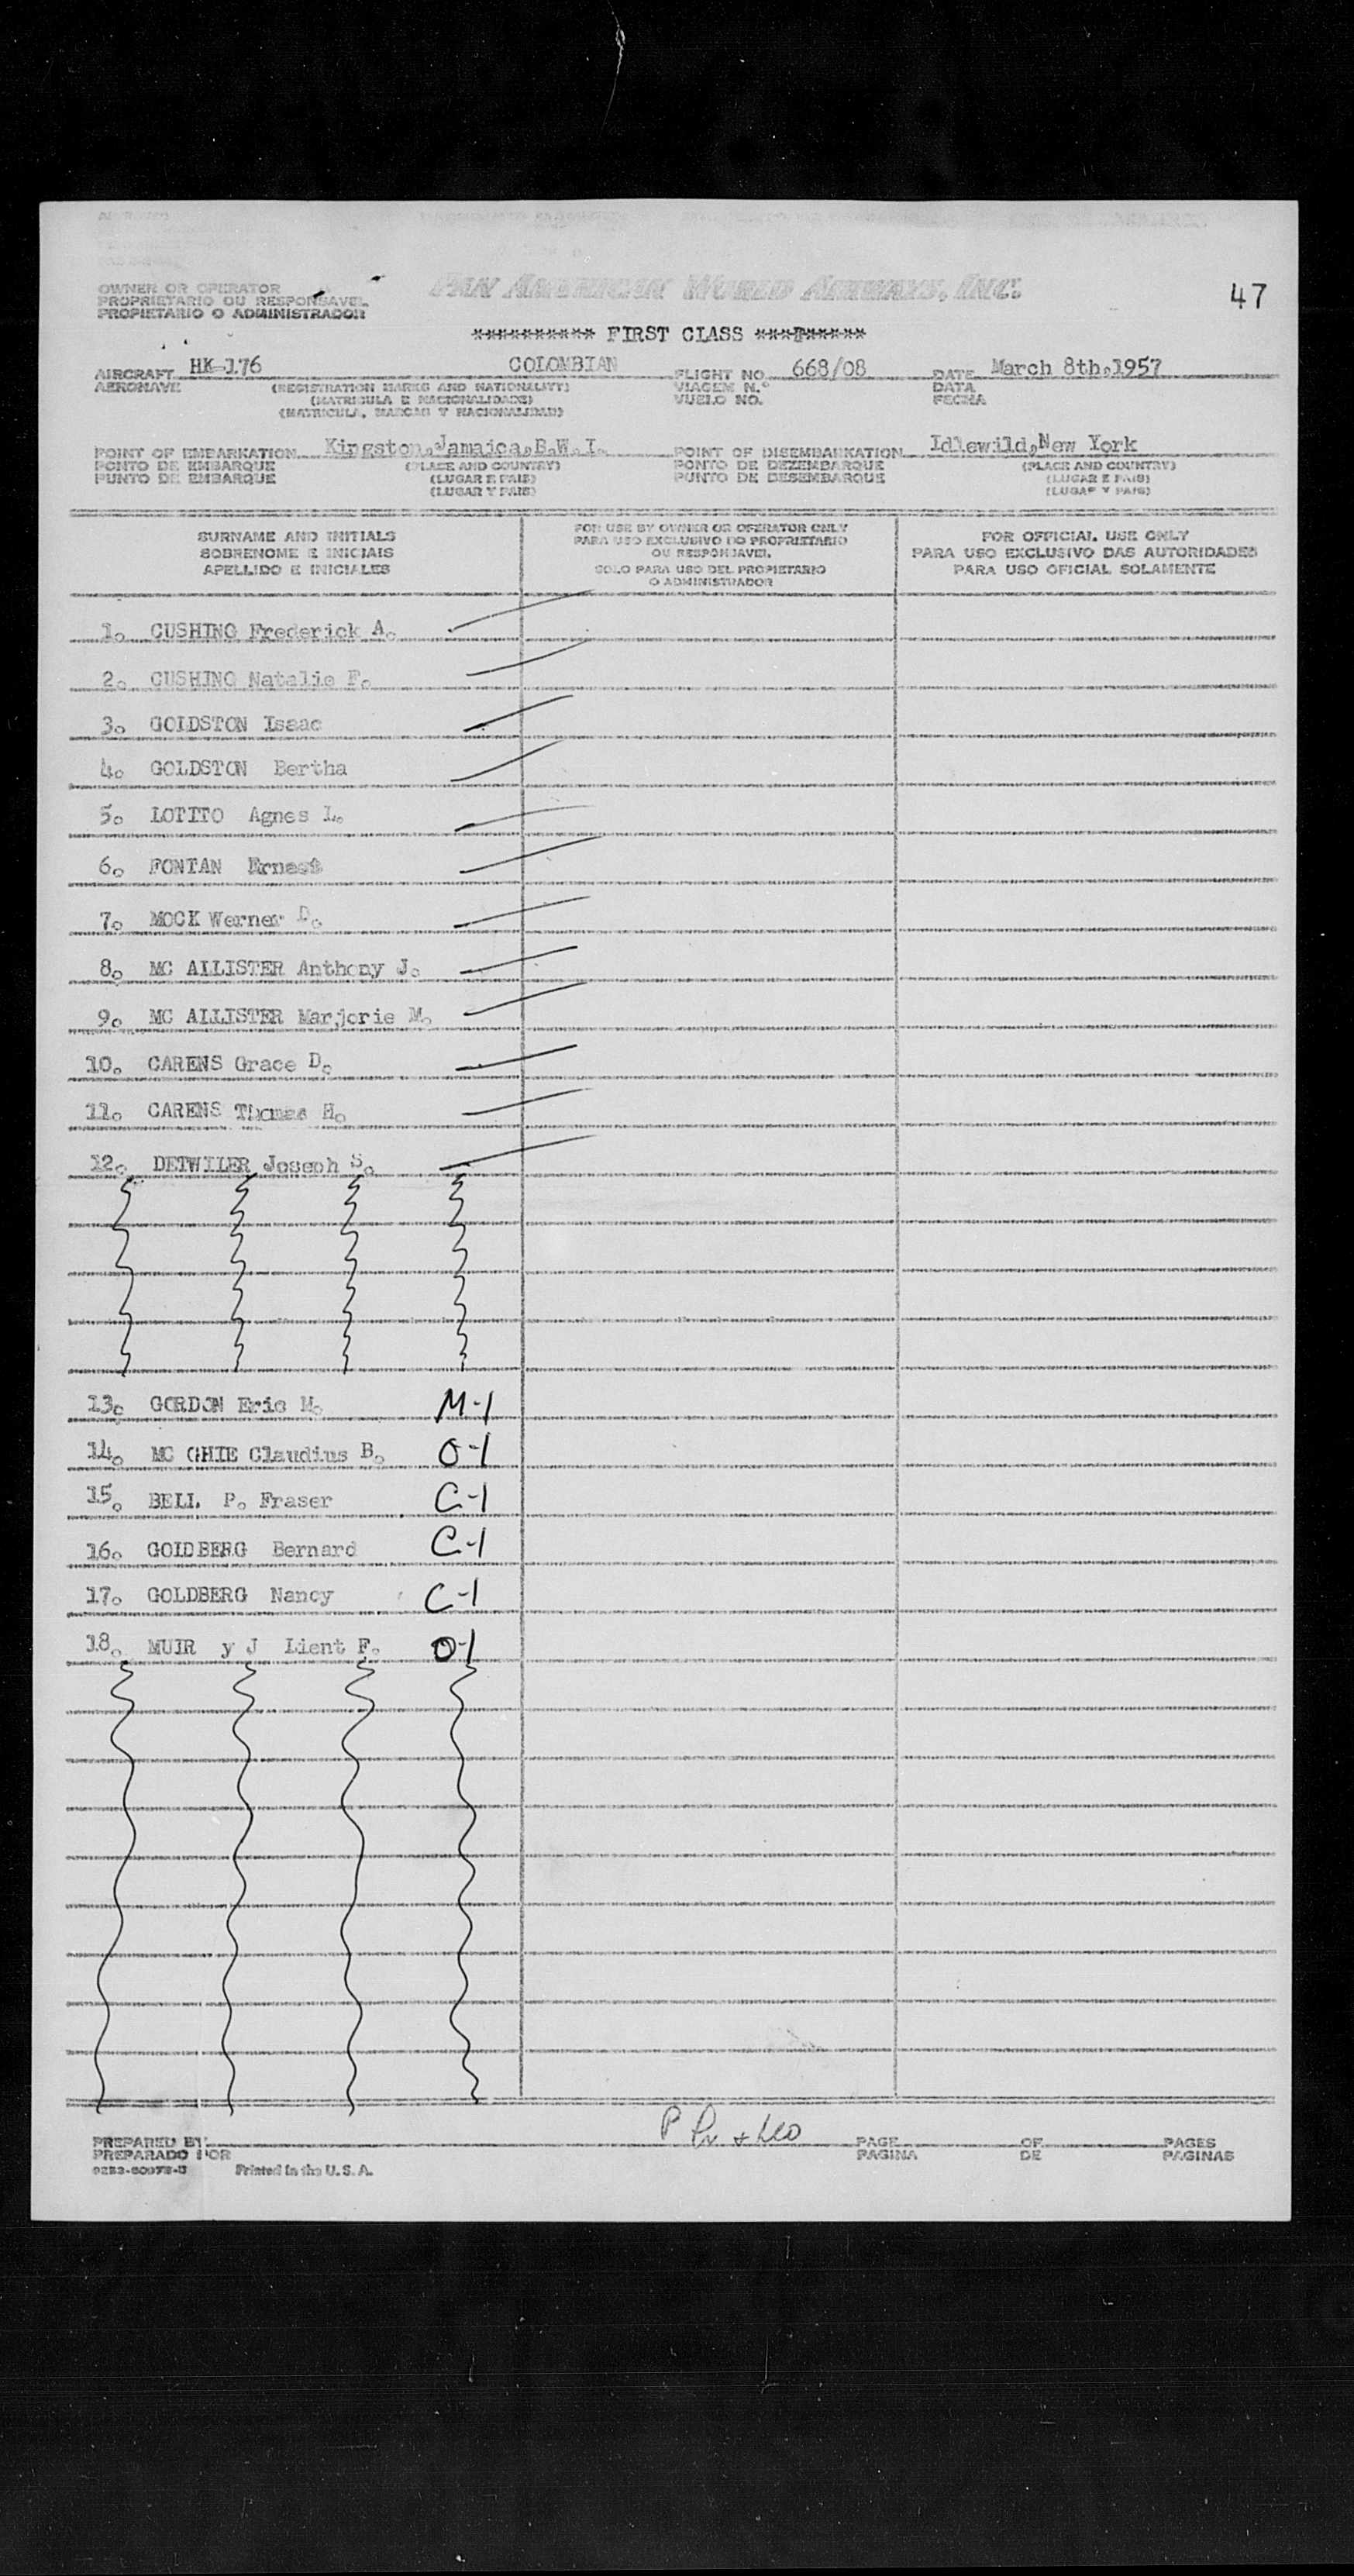 OWNER OR OPERATOR
PROPRIETARIO OU RESPONSAVEL
PROPIETARIO O ADMINISTRADOR
PAN AMERICAN WORLD AIRWAYS, INC.
47
********** FIRST CLASS **********
AIRCRAFT HK-176 COLOMBIAN FLIGHT NO. 668/08 DATE March 8th.1957
AERONAVE (REGISTRATION MARKS AND NATIONALITY) VIAGEM N.º DATA
(MATRICULA E NACIONALIDADE) VUELO NO. FECHA
(MATRICULA, MARCAS Y NACIONALIDAD)
POINT OF EMBARKATION Kingston,Jamaica,B.W.I. POINT OF DISEMBARKATION Idlewild,New York
PONTO DE EMBARQUE (PLACE AND COUNTRY) PONTO DE DEZEMBARQUE (PLACE AND COUNTRY)
PUNTO DE EMBARQUE (LUGAR E PAIS) PUNTO DE DESEMBARQUE (LUGAR E PAIS)
(LUGAR Y PAIS) (LUGAR Y PAIS)
SURNAME AND INITIALS
SOBRENOME E INICIAIS
APELLIDO E INICIALES
FOR USE BY OWNER OR OPERATOR ONLY
PARA USO EXCLUSIVO DO PROPRIETARIO
OU RESPONSAVEL
SOLO PARA USO DEL PROPIETARIO
O ADMINISTRADOR
FOR OFFICIAL USE ONLY
PARA USO EXCLUSIVO DAS AUTORIDADES
PARA USO OFICIAL SOLAMENTE
1. CUSHING Frederick A.
2. CUSHING Natalie F.
3. GOLDSTON Isaac
4. GOLDSTON Bertha
5. LOTITO Agnes L.
6. FONTAN Ernest
7. MOCK Werner D.
8. MC ALLISTER Anthony J.
9. MC ALLISTER Marjorie M.
10. CARENS Grace D.
11. CARENS Thomas H.
12. DETWILER Joseph S.
13. GORDON Eric M. M-1
14. MC GHIE Claudius B. O-1
15. BELL P. Fraser C-1
16. GOLDBERG Bernard C-1
17. GOLDBERG Nancy C-1
18. MUIR y J Lient F. O-1
PREPARED BY PAGE OF PAGES
PREPARADO POR PAGINA DE PAGINAS
Printed in the U.S.A.